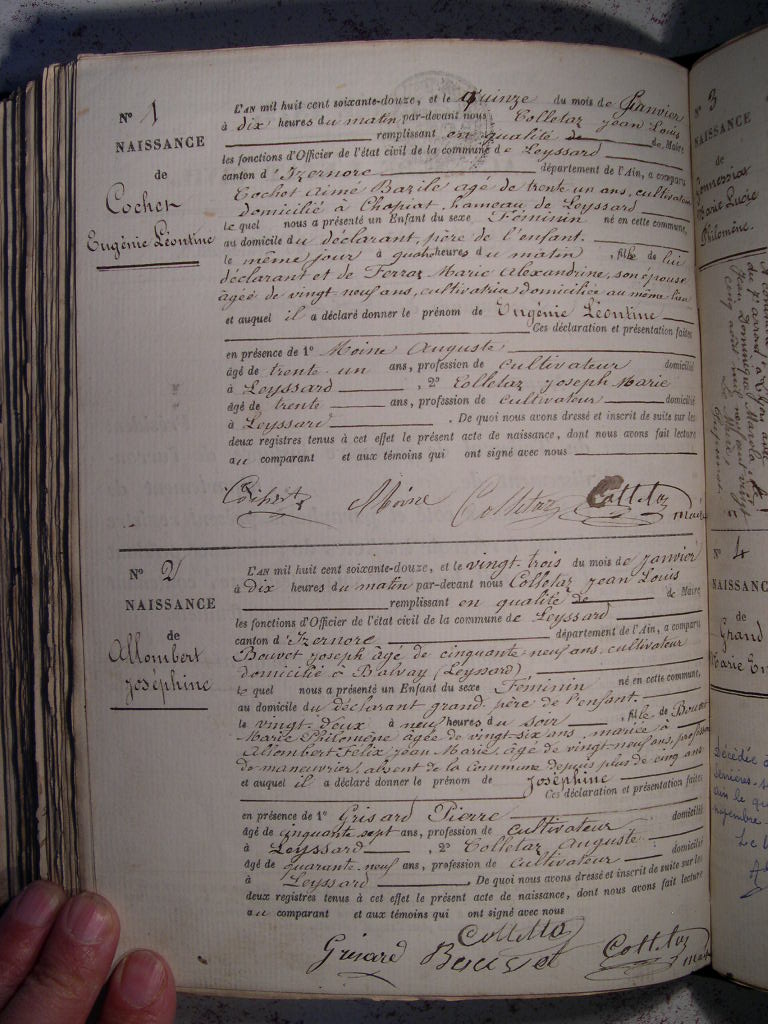 N° 1
NAISSANCE
de
Cochet
Eugénie Léontine
L'AN mil huit cent soixante-douze, et le Quinze du mois de Janvier
à dix heures du matin par-devant nous Colletaz Jean Louis
remplissant en qualité de de Maire
les fonctions d'Officier de l'état civil de la commune de Leyssard
canton d'Izernore département de l'Ain, a comparu
Cochet Aimé Bazile âgé de trente un ans, cultivateur
domicilié à Chapiat hameau de Leyssard
le quel nous a présenté un Enfant du sexe Féminin né en cette commune,
au domicile du déclarant, père de l'enfant.
le même jour à quatre heures du matin, fille de lui
déclarant et de Ferraz Marie Alexandrine, son épouse
âgée de vingt-neuf ans, cultivatrice domiciliée au même lieu
et auquel il a déclaré donner le prénom de Eugénie Léontine
Ces déclaration et présentation faites
en présence de 1° Moine Auguste
âgé de trente un ans, profession de cultivateur domicilié
à Leyssard, 2° Colletaz Joseph Marie
âgé de trente ans, profession de cultivateur domicilié
à Leyssard. De quoi nous avons dressé et inscrit de suite sur les
deux registres tenus à cet effet le présent acte de naissance, dont nous avons fait lecture
au comparant et aux témoins qui ont signé avec nous
Cochet Moine Colletaz Colletaz maire
N° 2
NAISSANCE
de
Allombert
Joséphine
L'AN mil huit cent soixante-douze, et le vingt-trois du mois de Janvier
à Dix heures du matin par-devant nous Colletaz Jean Louis
remplissant en qualité de de Maire
les fonctions d'Officier de l'état civil de la commune de Leyssard
canton d'Izernore département de l'Ain, a comparu
Bouvet Joseph âgé de cinquante-neuf ans, cultivateur
domicilié à Balvay (Leyssard)
le quel nous a présenté un Enfant du sexe Féminin né en cette commune,
au domicile du déclarant grand-père de l'enfant.
le vingt-deux à neuf heures du soir, fille de Bouvet
Marie Philomène âgée de vingt-six ans, mariée à
Allombert Félix Jean Marie, âgé de vingt-neuf ans, profession
de manouvrier, absent de la commune depuis plus de cinq ans
et auquel il a déclaré donner le prénom de Joséphine
Ces déclaration et présentation faites
en présence de 1° Grisard Pierre domicilié
âgé de cinquante sept ans, profession de cultivateur
à Leyssard, 2° Colletaz Auguste domicilié
âgé de quarante-neuf ans, profession de cultivateur
à Leyssard De quoi nous avons dressé et inscrit de suite sur les
deux registres tenus à cet effet le présent acte de naissance, dont nous avons fait lecture
au comparant et aux témoins qui ont signé avec nous
Colletaz
Grisard Bouvet Colletaz maire
N° 3
NAISSANCE
de
Marie Lucie
Philomène.
N° 4
NAISSANC
de
Grand